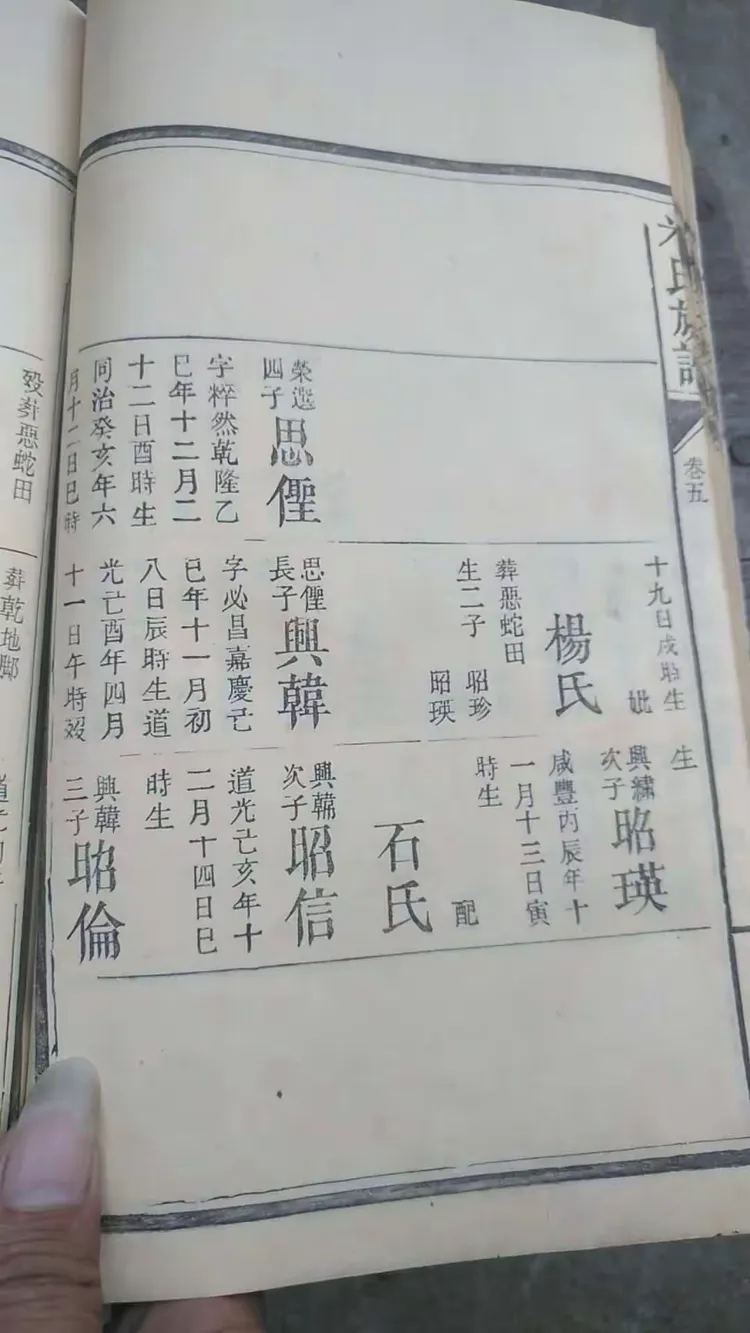 氏族譜
卷五
榮選
四子
思
字粹然乾隆乙
巳年十二月二
十二日酉時生
同治癸亥年六
月十二日巳時
十九日戌時生
妣
楊氏
葬惡蛇田
生二子
昭珍
昭瑛
思
長子
興韓
字必昌嘉慶己
巳年十一月初
八日辰時生道
光己酉年四月
十一日午時歿
生
興繡
次子
昭瑛
咸豐丙辰年十
一月十三日寅
時生
配
石氏
興韓
次子
昭信
道光己亥年十
二月十四日巳
時生
興韓
三子
昭倫
歿葬惡蛇田
葬乾地脚